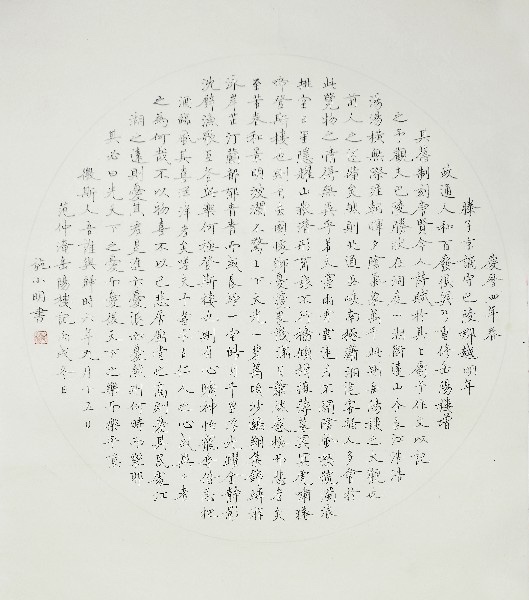 慶曆四年春
滕子京謫守巴陵郡越明年
政通人和百廢俱興乃重修岳陽樓增
其舊制刻唐賢今人詩賦於其上屬予作文以記
之予觀夫巴陵勝狀在洞庭一湖銜遠山吞長江浩浩
湯湯橫無際涯朝暉夕陰氣象萬千此則岳陽樓之大觀也
前人之述備矣然則北通巫峽南極瀟湘遷客騷人多會於
此覽物之情得無異乎若夫霪雨霏霏連月不開陰風怒號濁浪
排空日星隱耀山岳潛形商旅不行檣傾楫摧薄暮冥冥虎嘯猿
啼登斯樓也則有去國懷鄉憂讒畏譏滿目蕭然感極而悲者矣
至若春和景明波瀾不驚上下天光一碧萬頃沙鷗翔集錦鱗游
泳岸芷汀蘭郁郁青青而或長煙一空皓月千里浮光躍金靜影
沉璧漁歌互答此樂何極登斯樓也則有心曠神怡寵辱偕忘把
酒臨風其喜洋洋者矣嗟夫予嘗求古仁人之心或異二者
之為何哉不以物喜不以己悲居廟堂之高則憂其民處江
湖之遠則憂其君是進亦憂退亦憂然則何時而樂耶
其必曰先天下之憂而憂後天下之樂而樂乎噫
微斯人吾誰與歸時六年九月十五日
范仲淹岳陽樓記戌冬日
施小明書